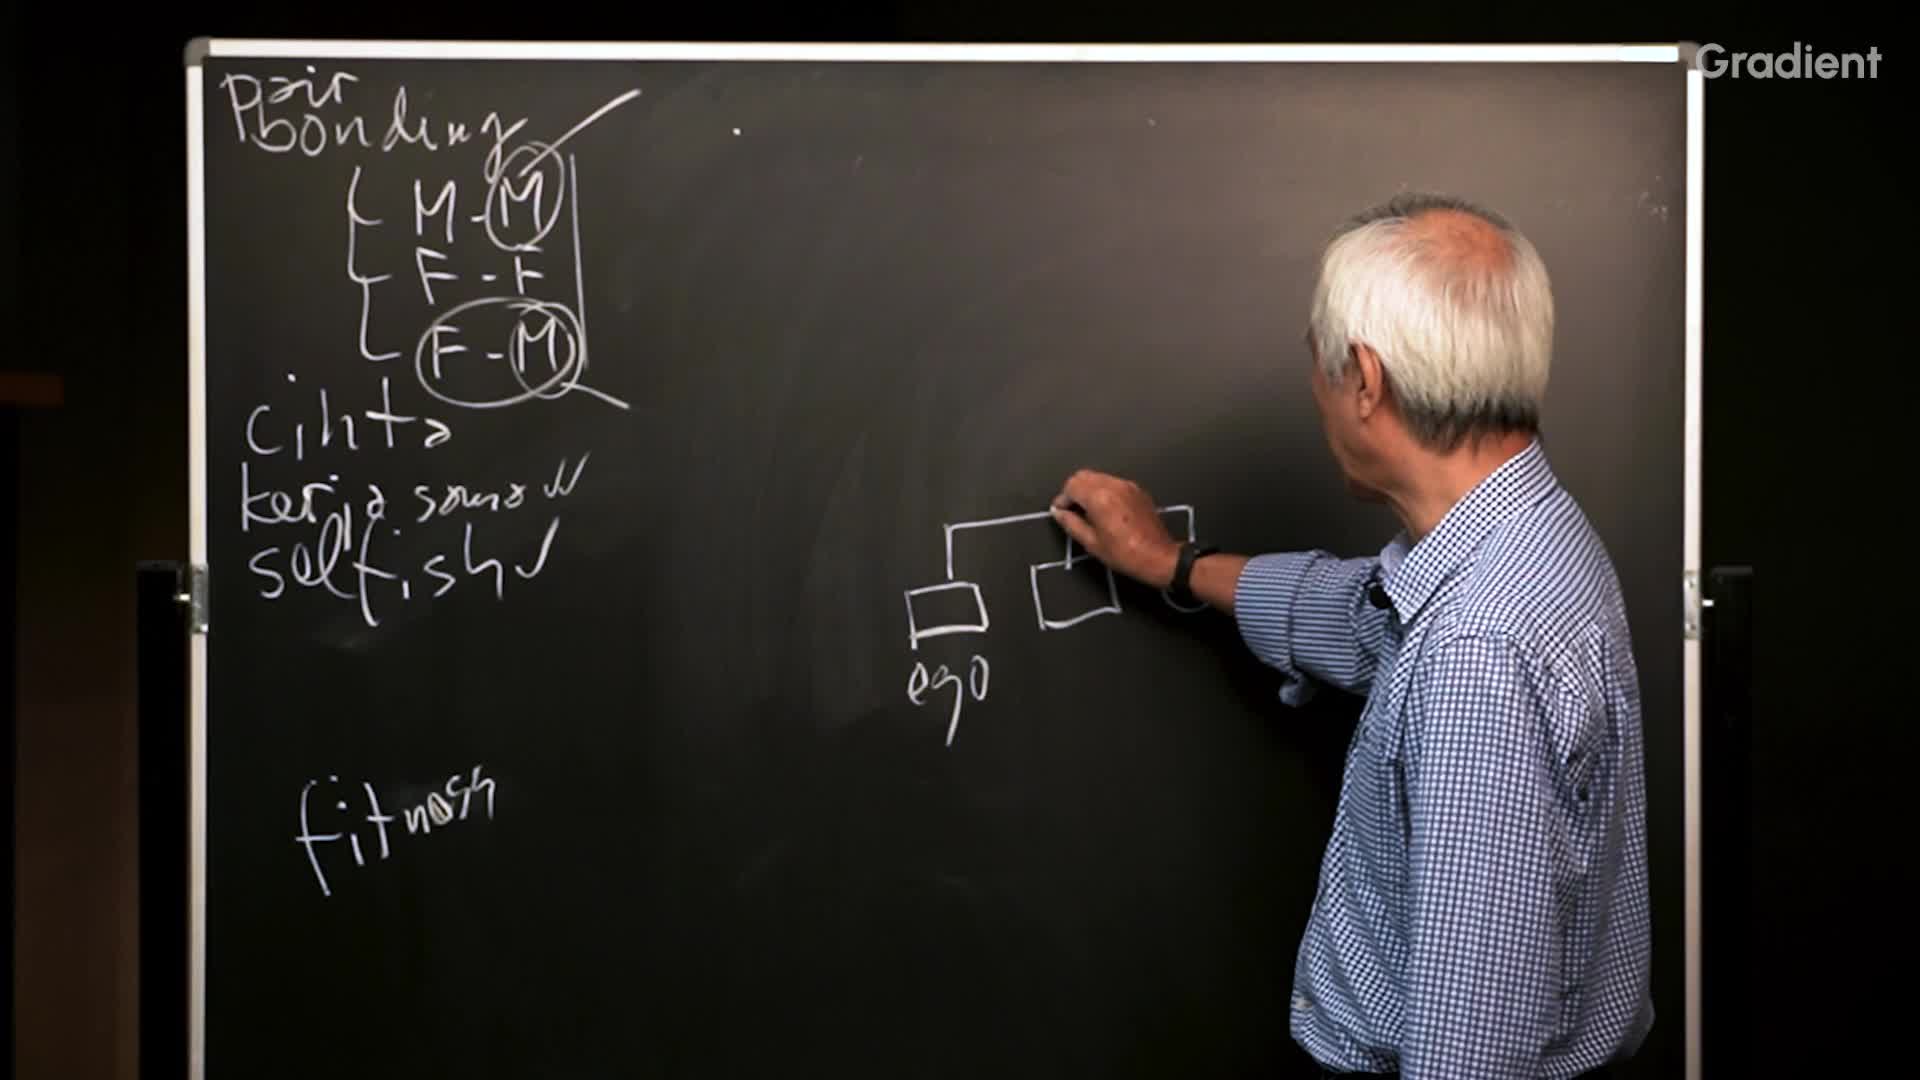 Gradient
Pair
bonding
M - M
F - F
F - M
cinta
kerja sama
selfish
ego
fitness